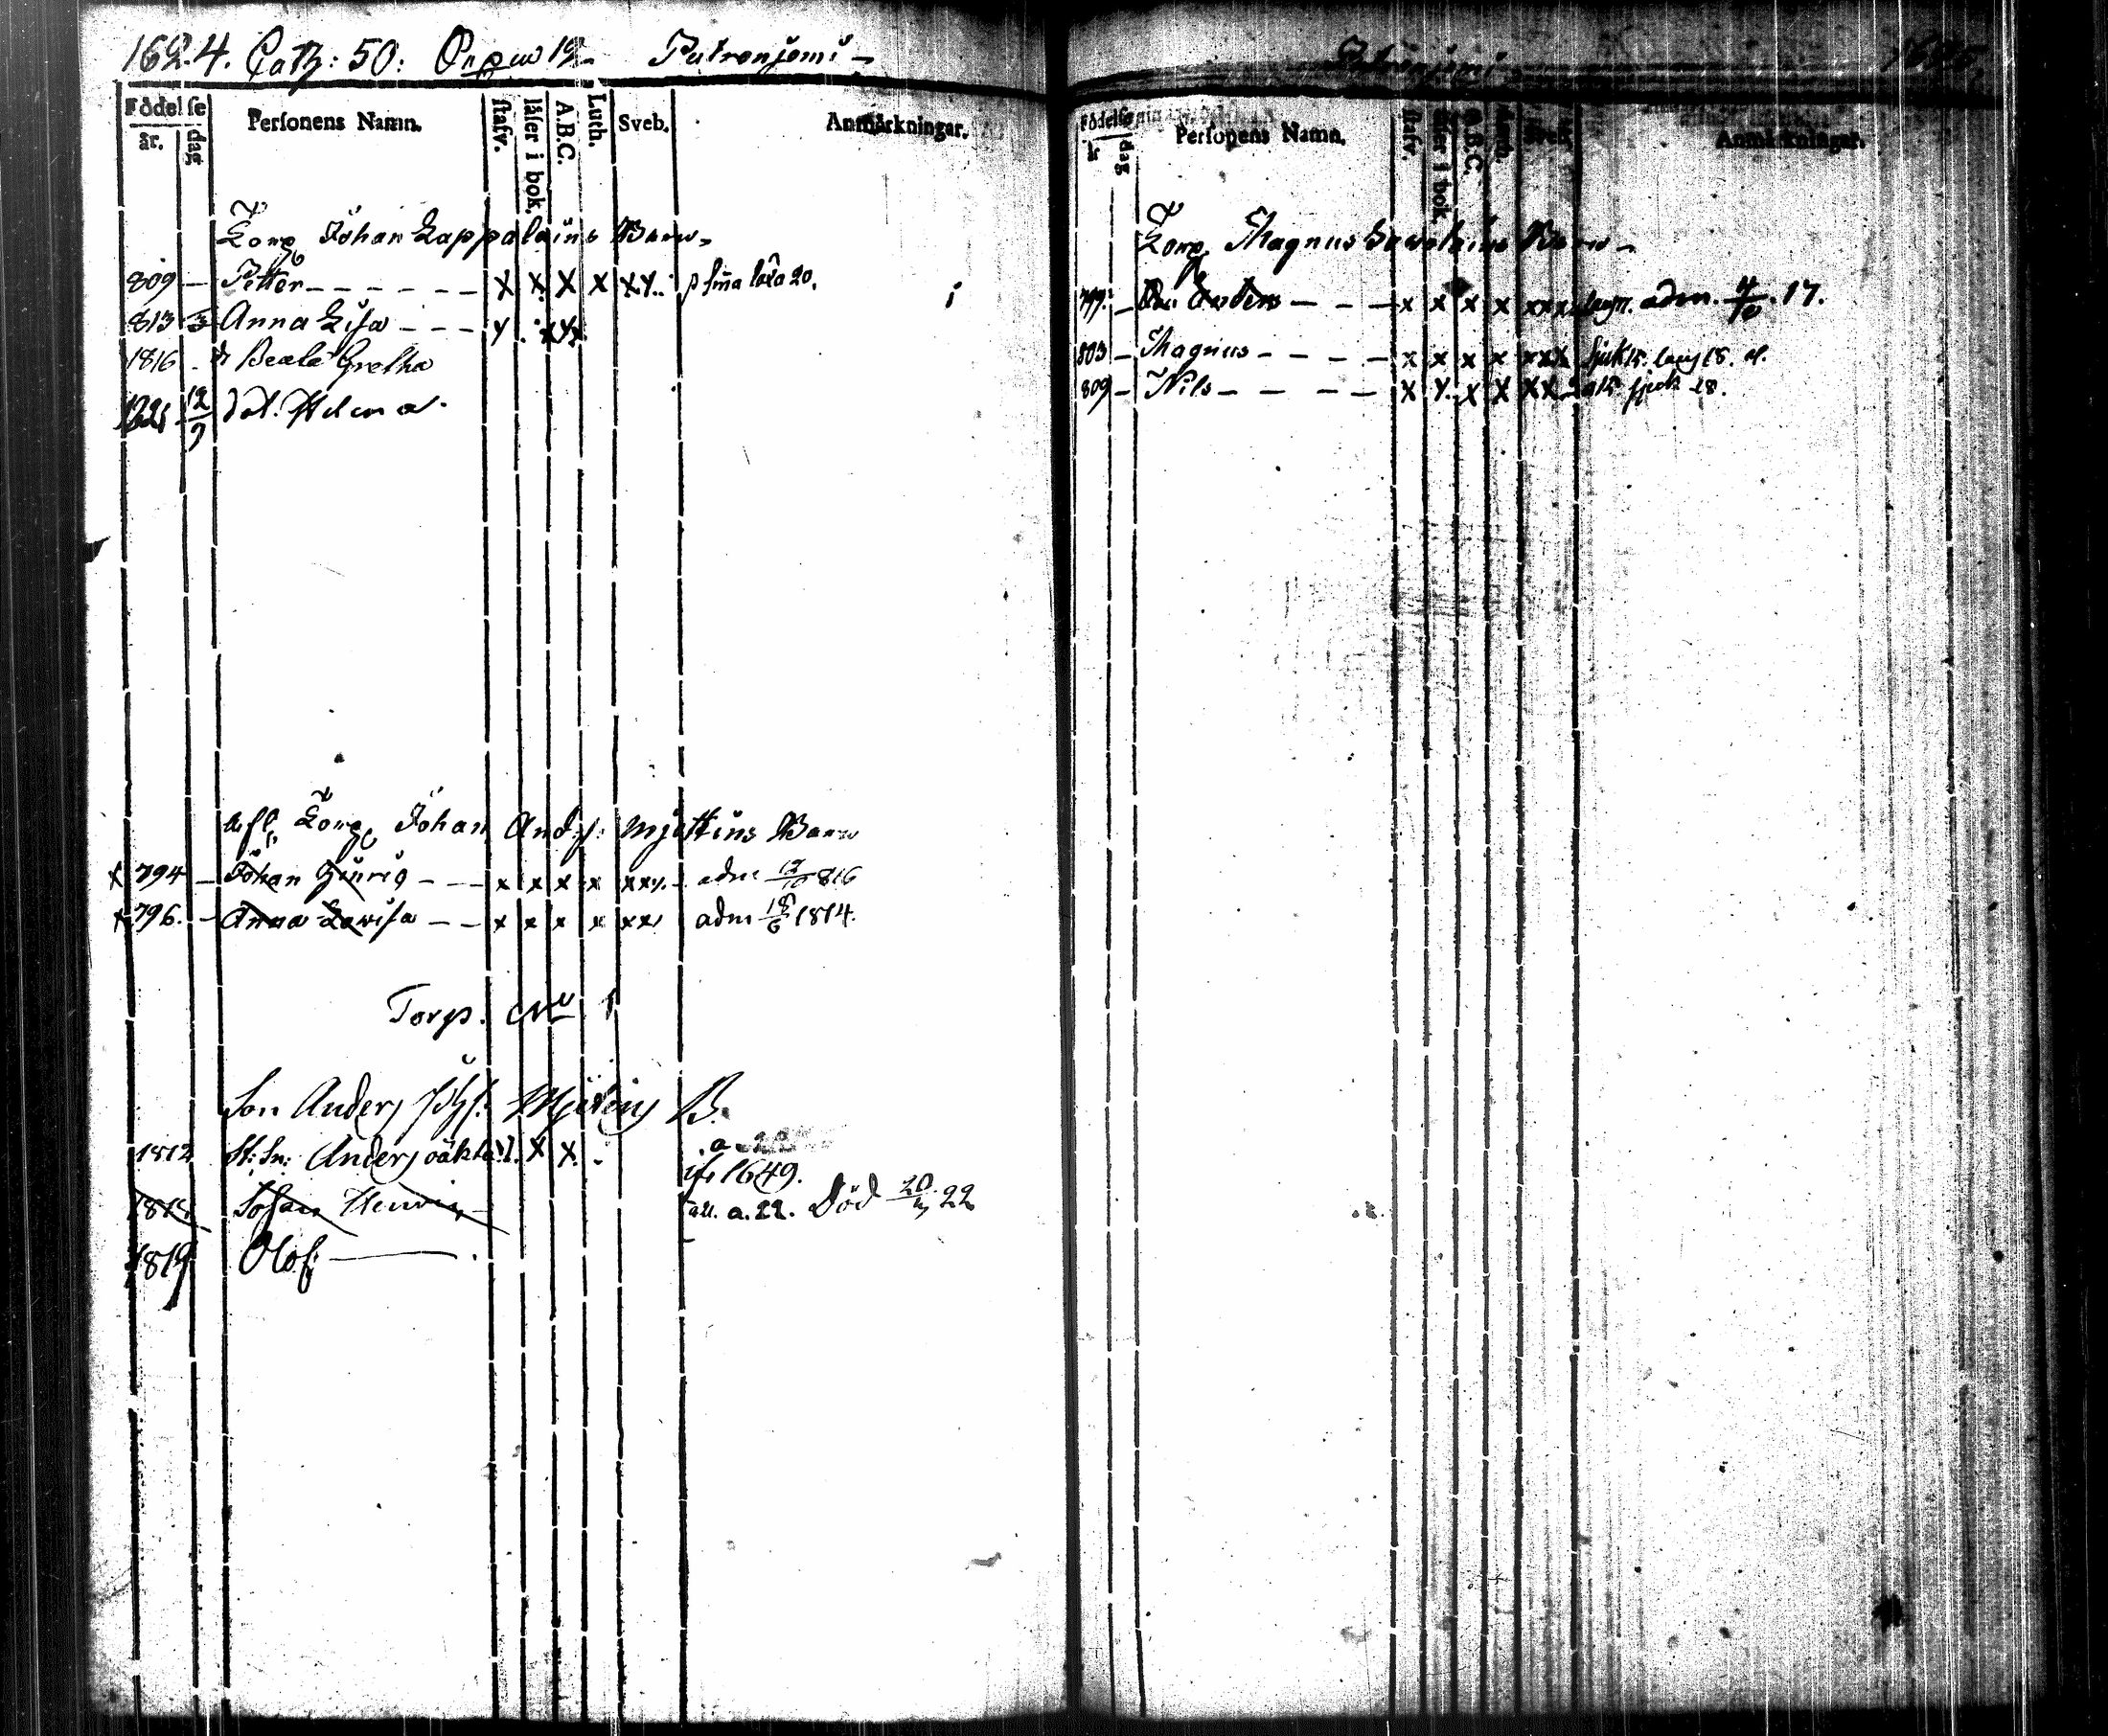 1624. Cath: 50: Orpus 12- Putronjemi -
Födelse
år. dag
Personens Namn.
stafv.
läser i bok.
A.B.C.
Luth.
Sveb.
Anmärkningar.
Torp Johan Lappalains Barn
809 - Petter - - - - - - x x x x xx.
813 Anna Lisa - - -
1816 - dr Beata Gretha
1821 12/9 dot. Helena.
Afl. Torp. Johan Anders: Myttins Barn
x 794 - Johan Hinric - - - x x x x xxx. adm 12/10 816
x 796. - Anna Lovisa - - x x x x xxx adm 18/6 1814.
Torp. No 1
Son Anders B.
1812 St: Sn: Anders oäkta x x
a 22
1649.
1818 Johan Henric a. 22. Död 20/4 22
1819 Olof
Putronjemi
1625.
Födelse
år dag
Personens Namn.
stafv.
läser i bok
A.B.C.
Luth.
Sveb.
Anmärkningar.
Torp Magnus Barn -
797. - Anders - - - x x x x xxx adm. 4/10. 17.
803 - Magnus - - - - x x x x xxx
809 - Nils - - - - x x. x x xx sjuk 18.